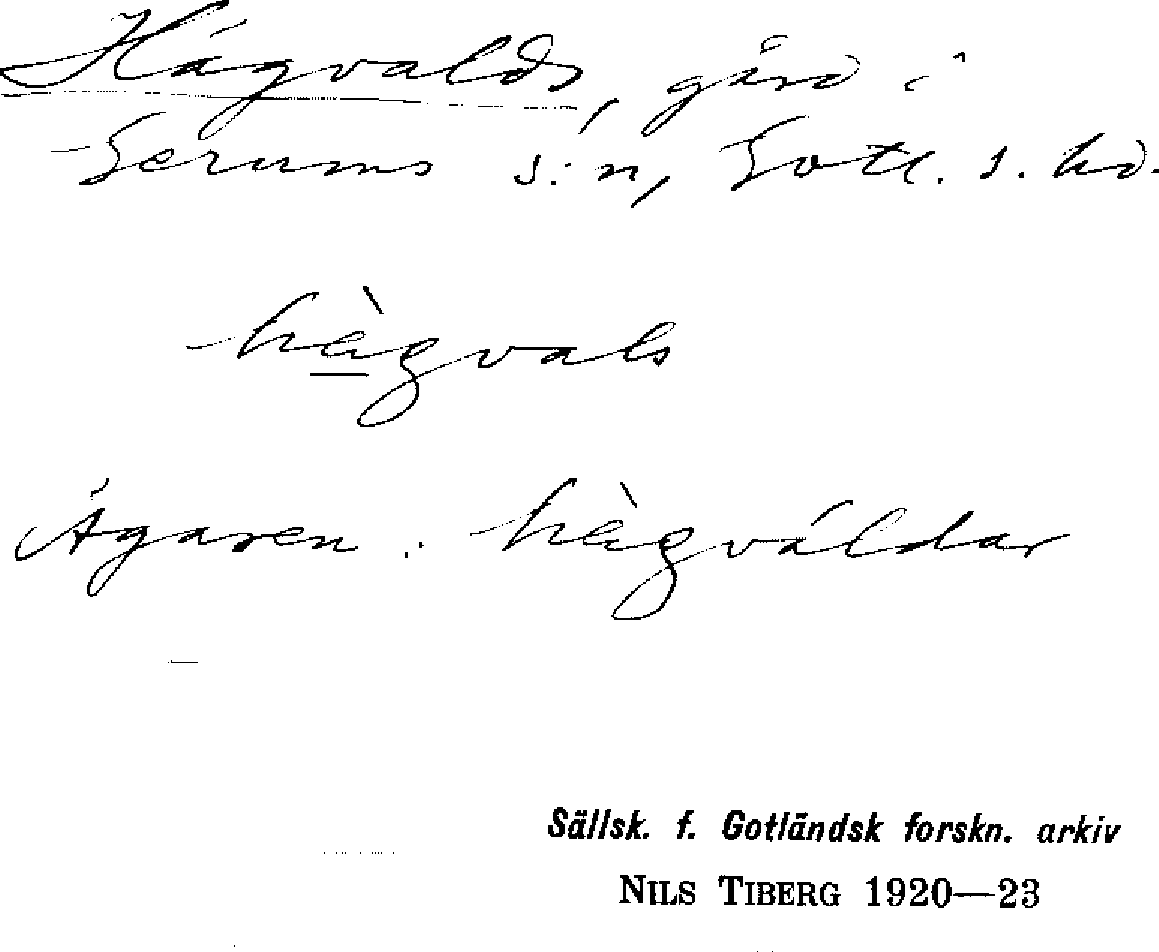 Hägvalds, gård i
Gerums s:n, Gotl. s. hd.
hàgvals
Ägaren: hàgváldar
Sällsk. f. Gotländsk forskn. arkiv
NILS TIBERG 1920—23